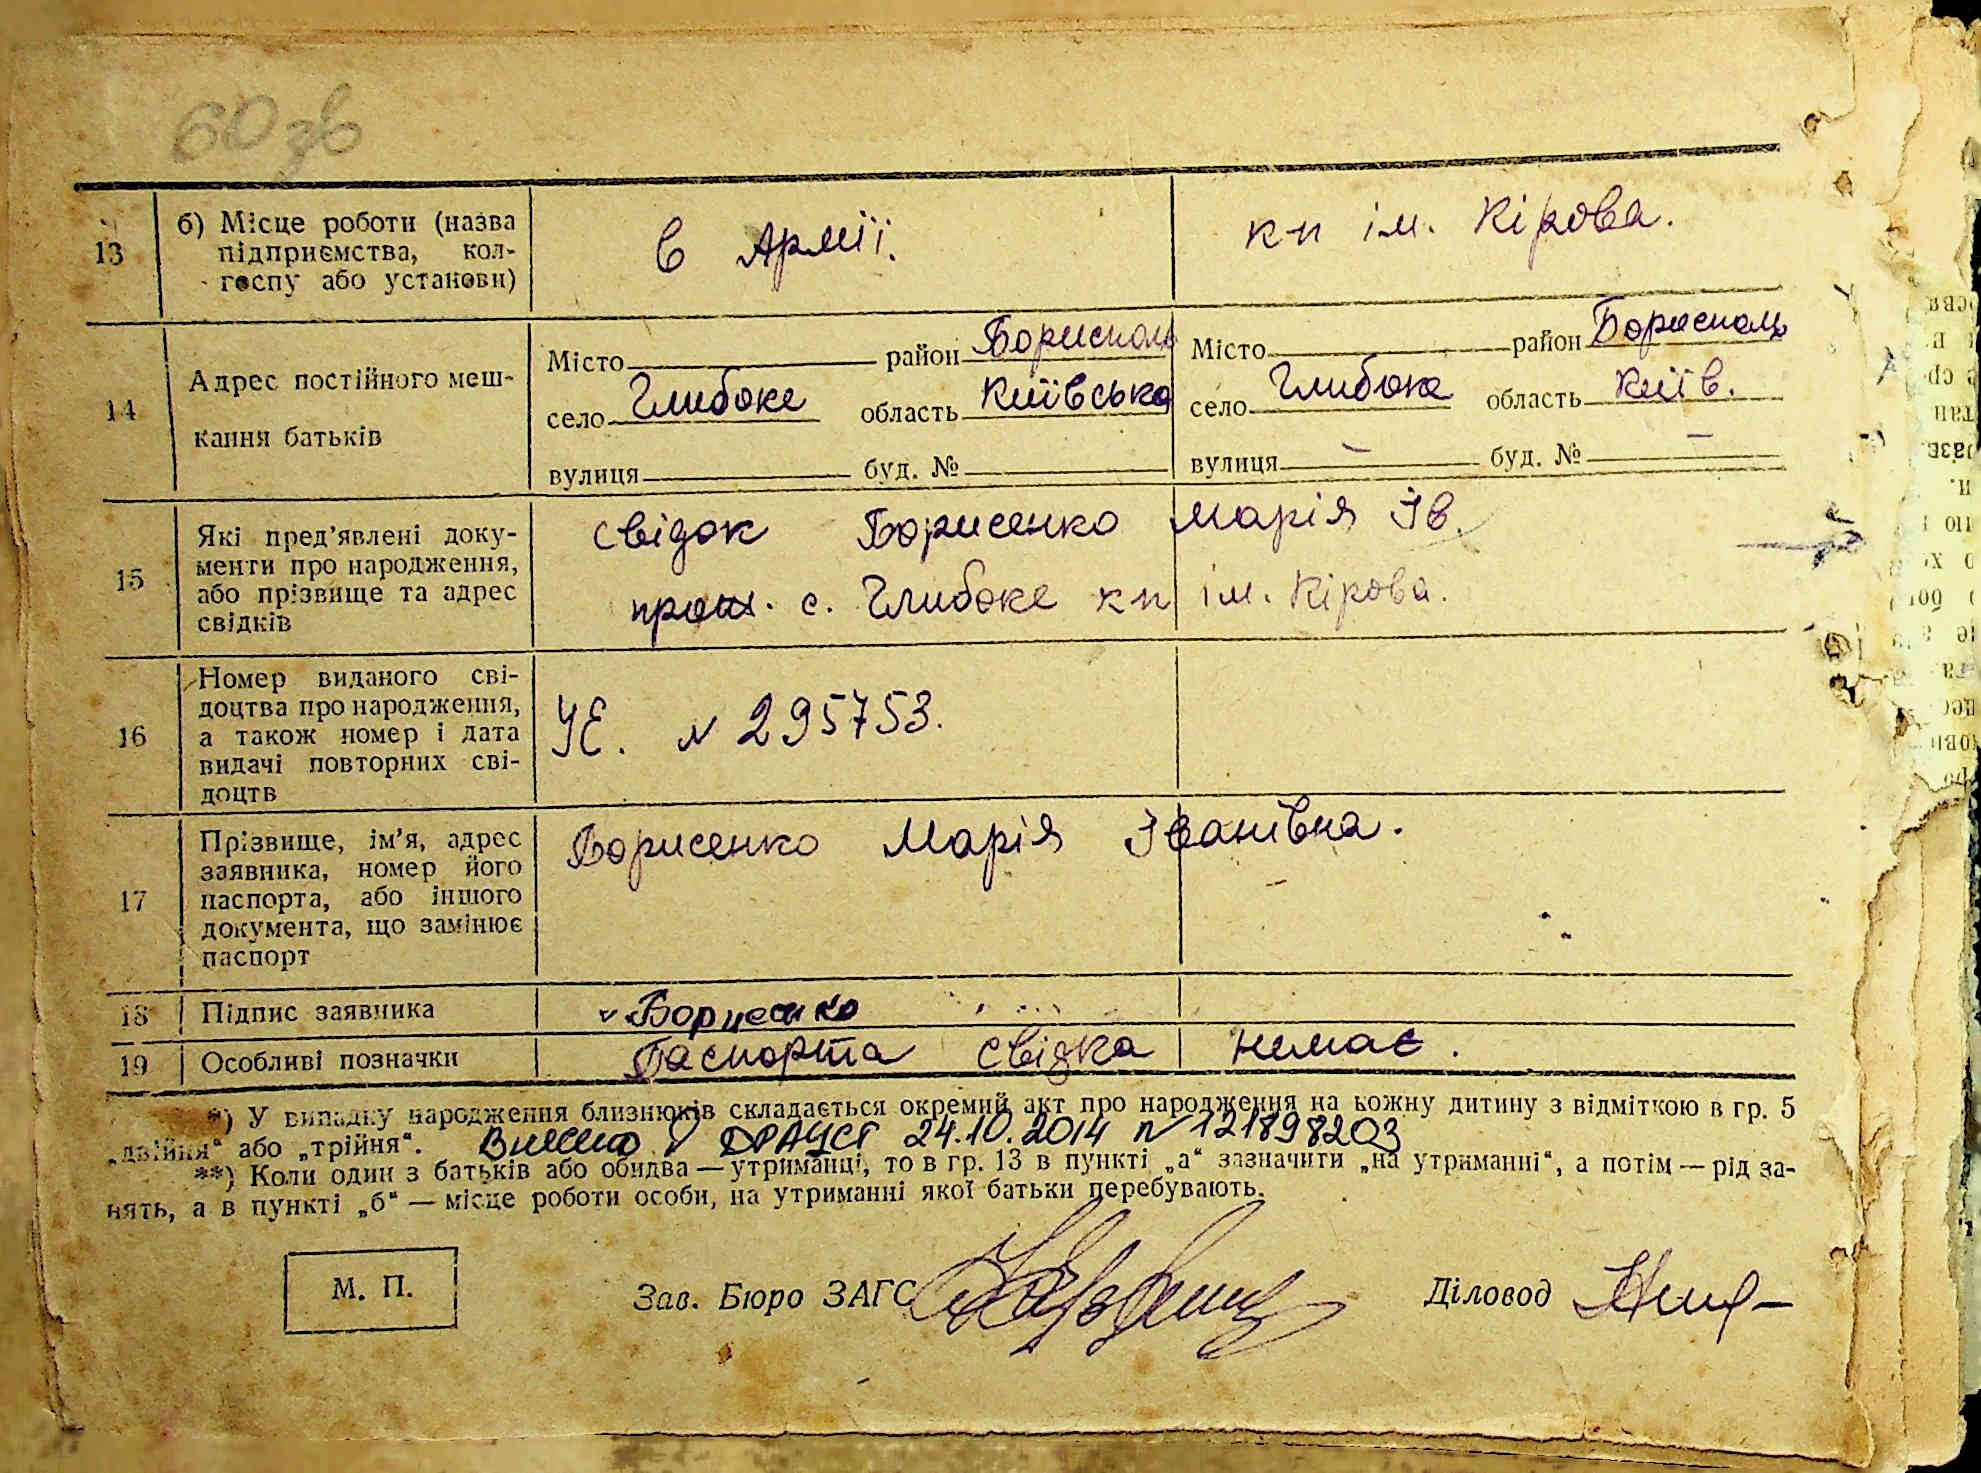 60 зв
13
б) Місце роботи (назва
підприємства, кол-
госпу або установи)
в Армії.
кп ім. Кірова.
14
Адрес постійного меш-
кання батьків
Місто район Бориспол
село Глибоке область Київська
вулиця буд. №
Місто район Бориспол
село Глибоке область Київ.
вулиця — буд. № —
15
Які пред'явлені доку-
менти про народження,
або прізвище та адрес
свідків
свідок Борисенко Марія Ів.
прож. с. Глибоке кп ім. Кірова.
16
Номер виданого сві-
доцтва про народження,
а також номер і дата
видачі повторних сві-
доцтв
УЕ. № 295753.
17
Прізвище, ім'я, адрес
заявника, номер його
паспорта, або іншого
документа, що замінює
паспорт
Борисенко Марія Іванівна.
18 Підпис заявника Борисенко
19 Особливі позначки Паспорта свідка немає.
*) У випадку народження близнюків складається окремий акт про народження на кожну дитину з відміткою в гр. 5
„двійня“ або „трійня“. Внесено в ДРАЦСГ 24.10.2014 № 121898203
**) Коли один з батьків або обидва — утриманці, то в гр. 13 в пункті „а“ зазначити „на утриманні“, а потім — рід за-
нять, а в пункті „б“ — місце роботи особи, на утриманні якої батьки перебувають.
М. П.
Зав. Бюро ЗАГС
Діловод